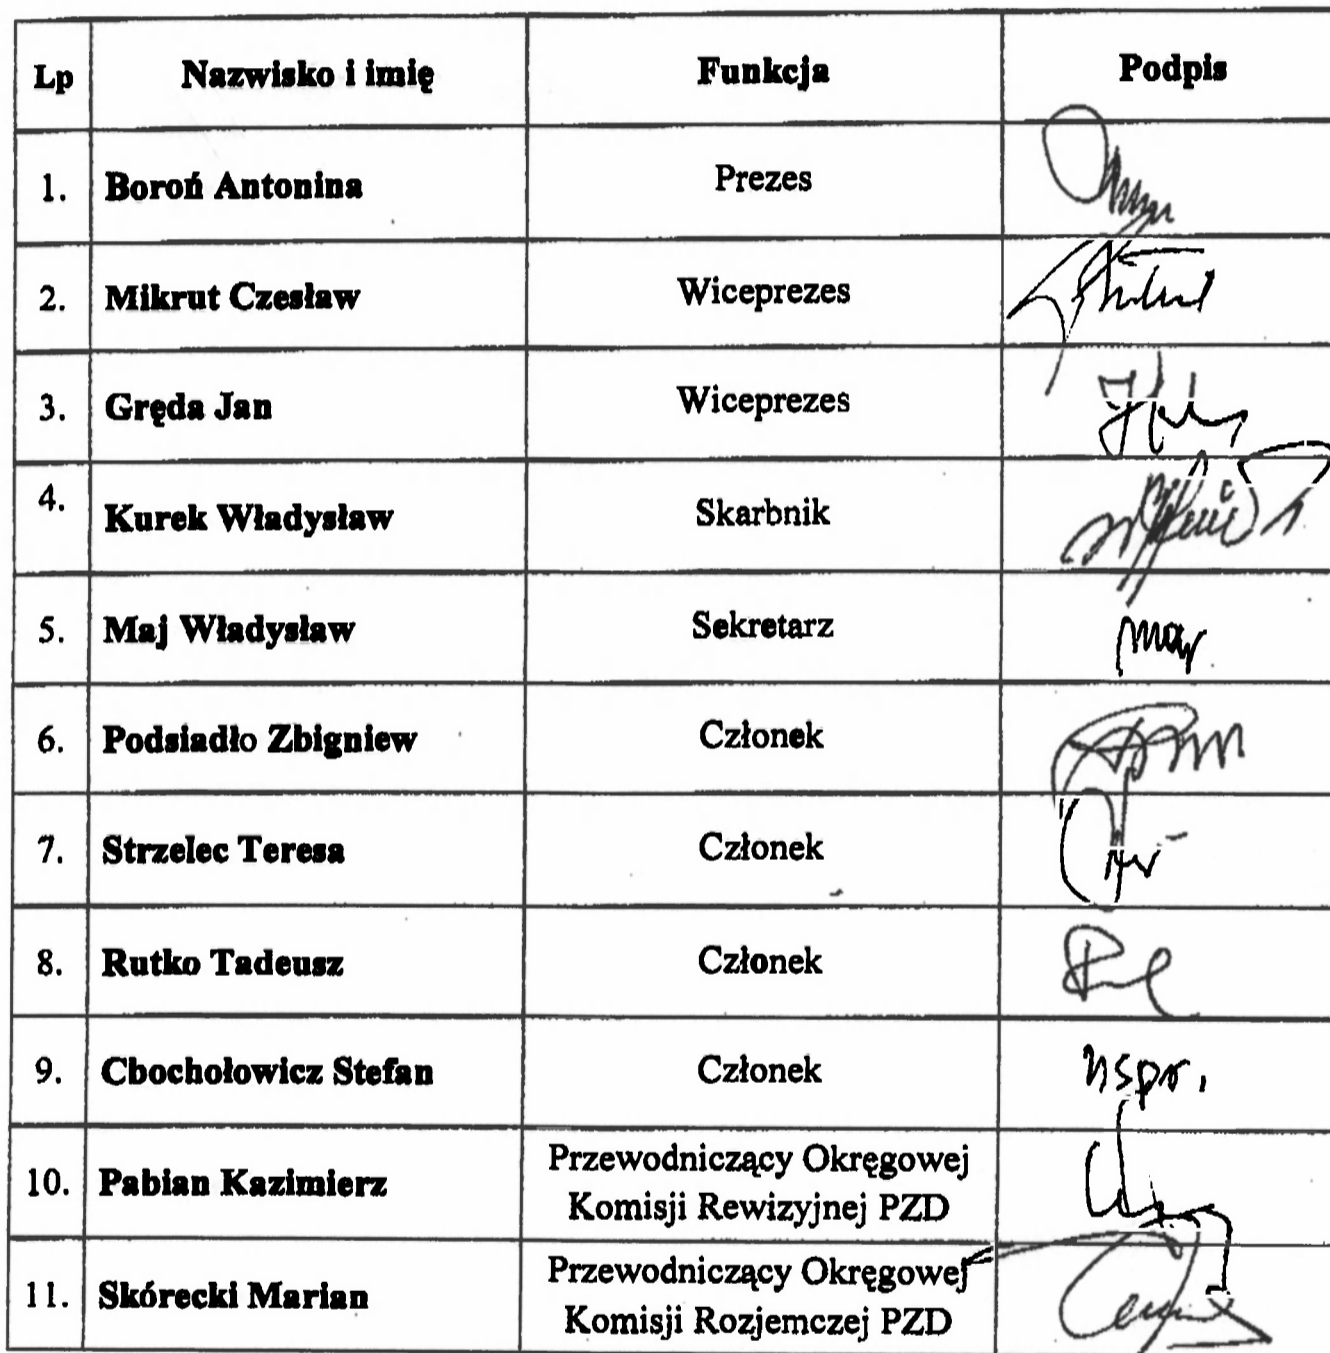 Lp Nazwisko i imię Funkcja Podpis
1. Boroń Antonina Prezes
2. Mikrut Czesław Wiceprezes
3. Gręda Jan Wiceprezes
4. Kurek Władysław Skarbnik
5. Maj Władysław Sekretarz Maj
6. Podsiadło Zbigniew Członek
7. Strzelec Teresa Członek
8. Rutko Tadeusz Członek
9. Cbochołowicz Stefan Członek nspr.
10. Pabian Kazimierz Przewodniczący Okręgowej
Komisji Rewizyjnej PZD
11. Skórecki Marian Przewodniczący Okręgowej
Komisji Rozjemczej PZD